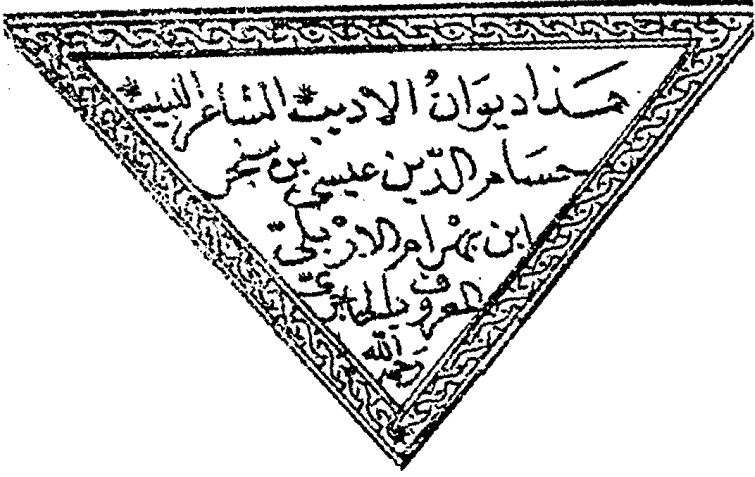 هَذَا دِيوَانُ الاديب * الشاعر اللبيب *
حسَام الدّين عيسى بن سنجر
ابن بهرام الاربلىّ
المعروف بالحاجرىّ
رحمه الله